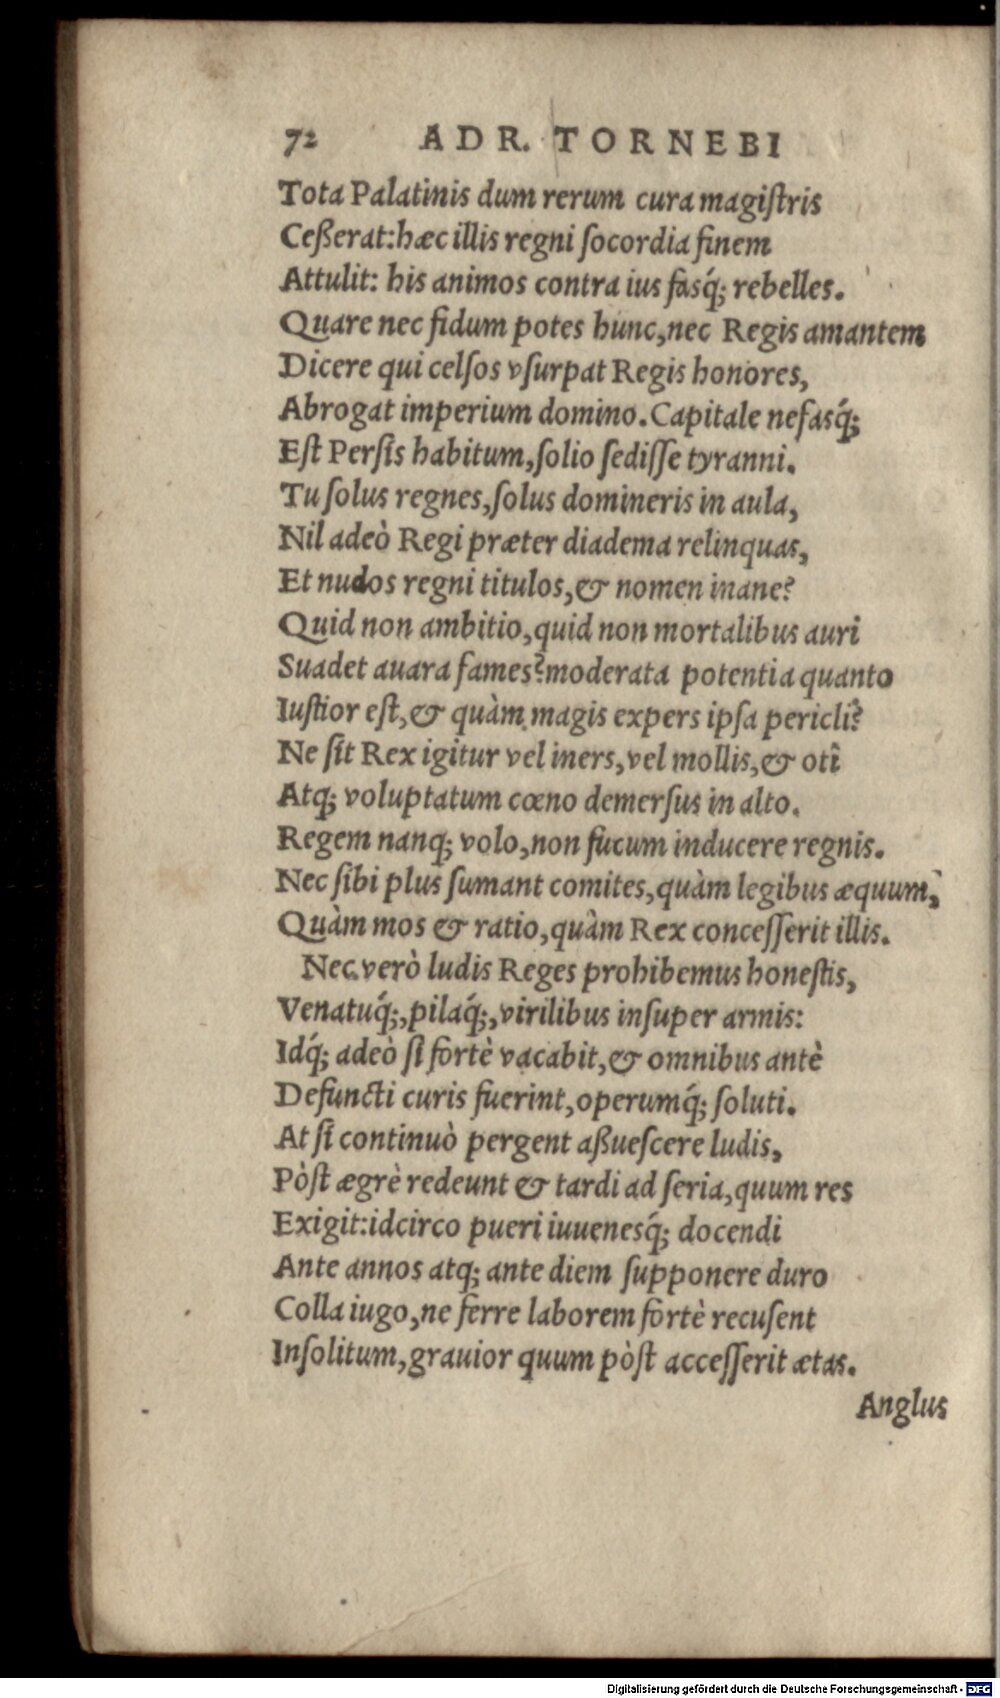 72 ADR. TORNEBI
Tota Palatinis dum rerum cura magiſtris
Ceßerat: hæc illis regni ſocordia finem
Attulit: his animos contra ius fasq́; rebelles.
Quare nec fidum potes hunc, nec Regis amantem
Dicere qui celſos vſurpat Regis honores,
Abrogat imperium domino. Capitale nefasq́;
Eſt Perſis habitum, ſolio ſediſſe tyranni.
Tu ſolus regnes, ſolus domineris in aula,
Nil adeò Regi præter diadema relinquas,
Et nudos regni titulos, & nomen inane?
Quid non ambitio, quid non mortalibus auri
Suadet auara fames? moderata potentia quanto
Iuſtior eſt, & quàm magis expers ipſa pericli?
Ne ſit Rex igitur vel iners, vel mollis, & otî
Atq; voluptatum cœno demerſus in alto.
Regem nanq; volo, non fucum inducere regnis.
Nec ſibi plus ſumant comites, quàm legibus æquum,
Quàm mos & ratio, quàm Rex conceſſerit illis.
Nec verò ludis Reges prohibemus honeſtis,
Venatuq́;, pilaq́;, virilibus inſuper armis:
Idq́; adeò ſi fortè vacabit, & omnibus antè
Defuncti curis fuerint, operumq́; ſoluti.
At ſi continuò pergent aßueſcere ludis,
Pòſt ægrè redeunt & tardi ad ſeria, quum res
Exigit: idcirco pueri iuuenesq́; docendi
Ante annos atq; ante diem ſupponere duro
Colla iugo, ne ferre laborem fortè recuſent
Inſolitum, grauior quum pòſt acceſſerit ætas.
Anglus
Digitalisierung gefördert durch die Deutsche Forschungsgemeinschaft - DFG